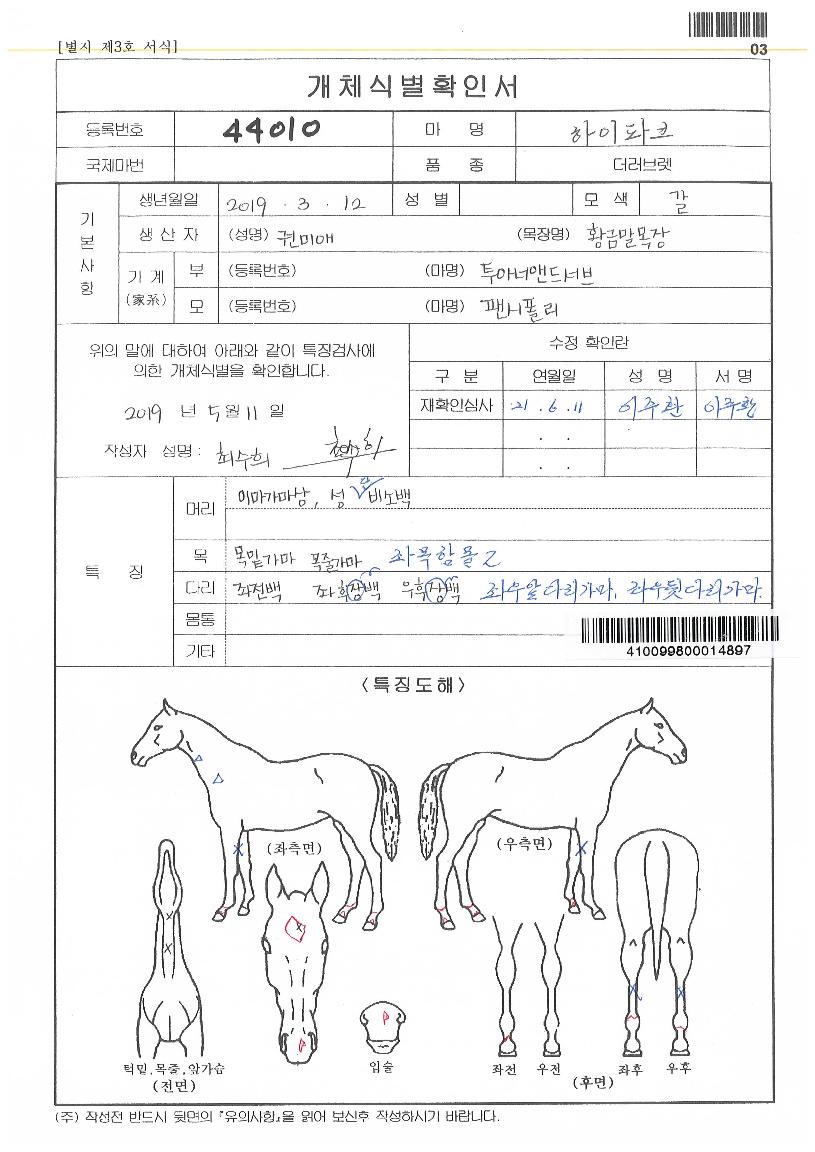 [별지 제3호 서식]
03
개체식별확인서
등록번호 44010 마 명 하이파크
국제마번 품 종 더러브렛
기본사항
생년월일 2019 . 3 . 12 성 별 모 색 갈
생 산 자 (성명) 권미애 (목장명) 황금말목장
기 계 (家系)
부 (등록번호) (마명) 투아너앤드서브
모 (등록번호) (마명) 팬시폴리
위의 말에 대하여 아래와 같이 특징검사에
의한 개체식별을 확인합니다.
2019 년 5 월 11 일
작성자 성명 : 최수희
수정 확인란
구 분 연월일 성 명 서 명
재확인심사 21 . 6 . 11 이주환 이주환
. .
. .
특 징
머리 이마가마상, 성 비소백
목 목밑가마 목줄가마 좌목함몰2
다리 좌전백 좌후장백 우후장백 좌우앞다리가마, 좌우뒷다리가마.
몸통
기타
410099800014897
〈특징도해〉
(좌측면)
(우측면)
턱밑,목줄,앞가슴
(전면)
입술
좌전 우전
(후면)
좌후 우후
(주) 작성전 반드시 뒷면의 『유의사항』을 읽어 보신후 작성하시기 바랍니다.